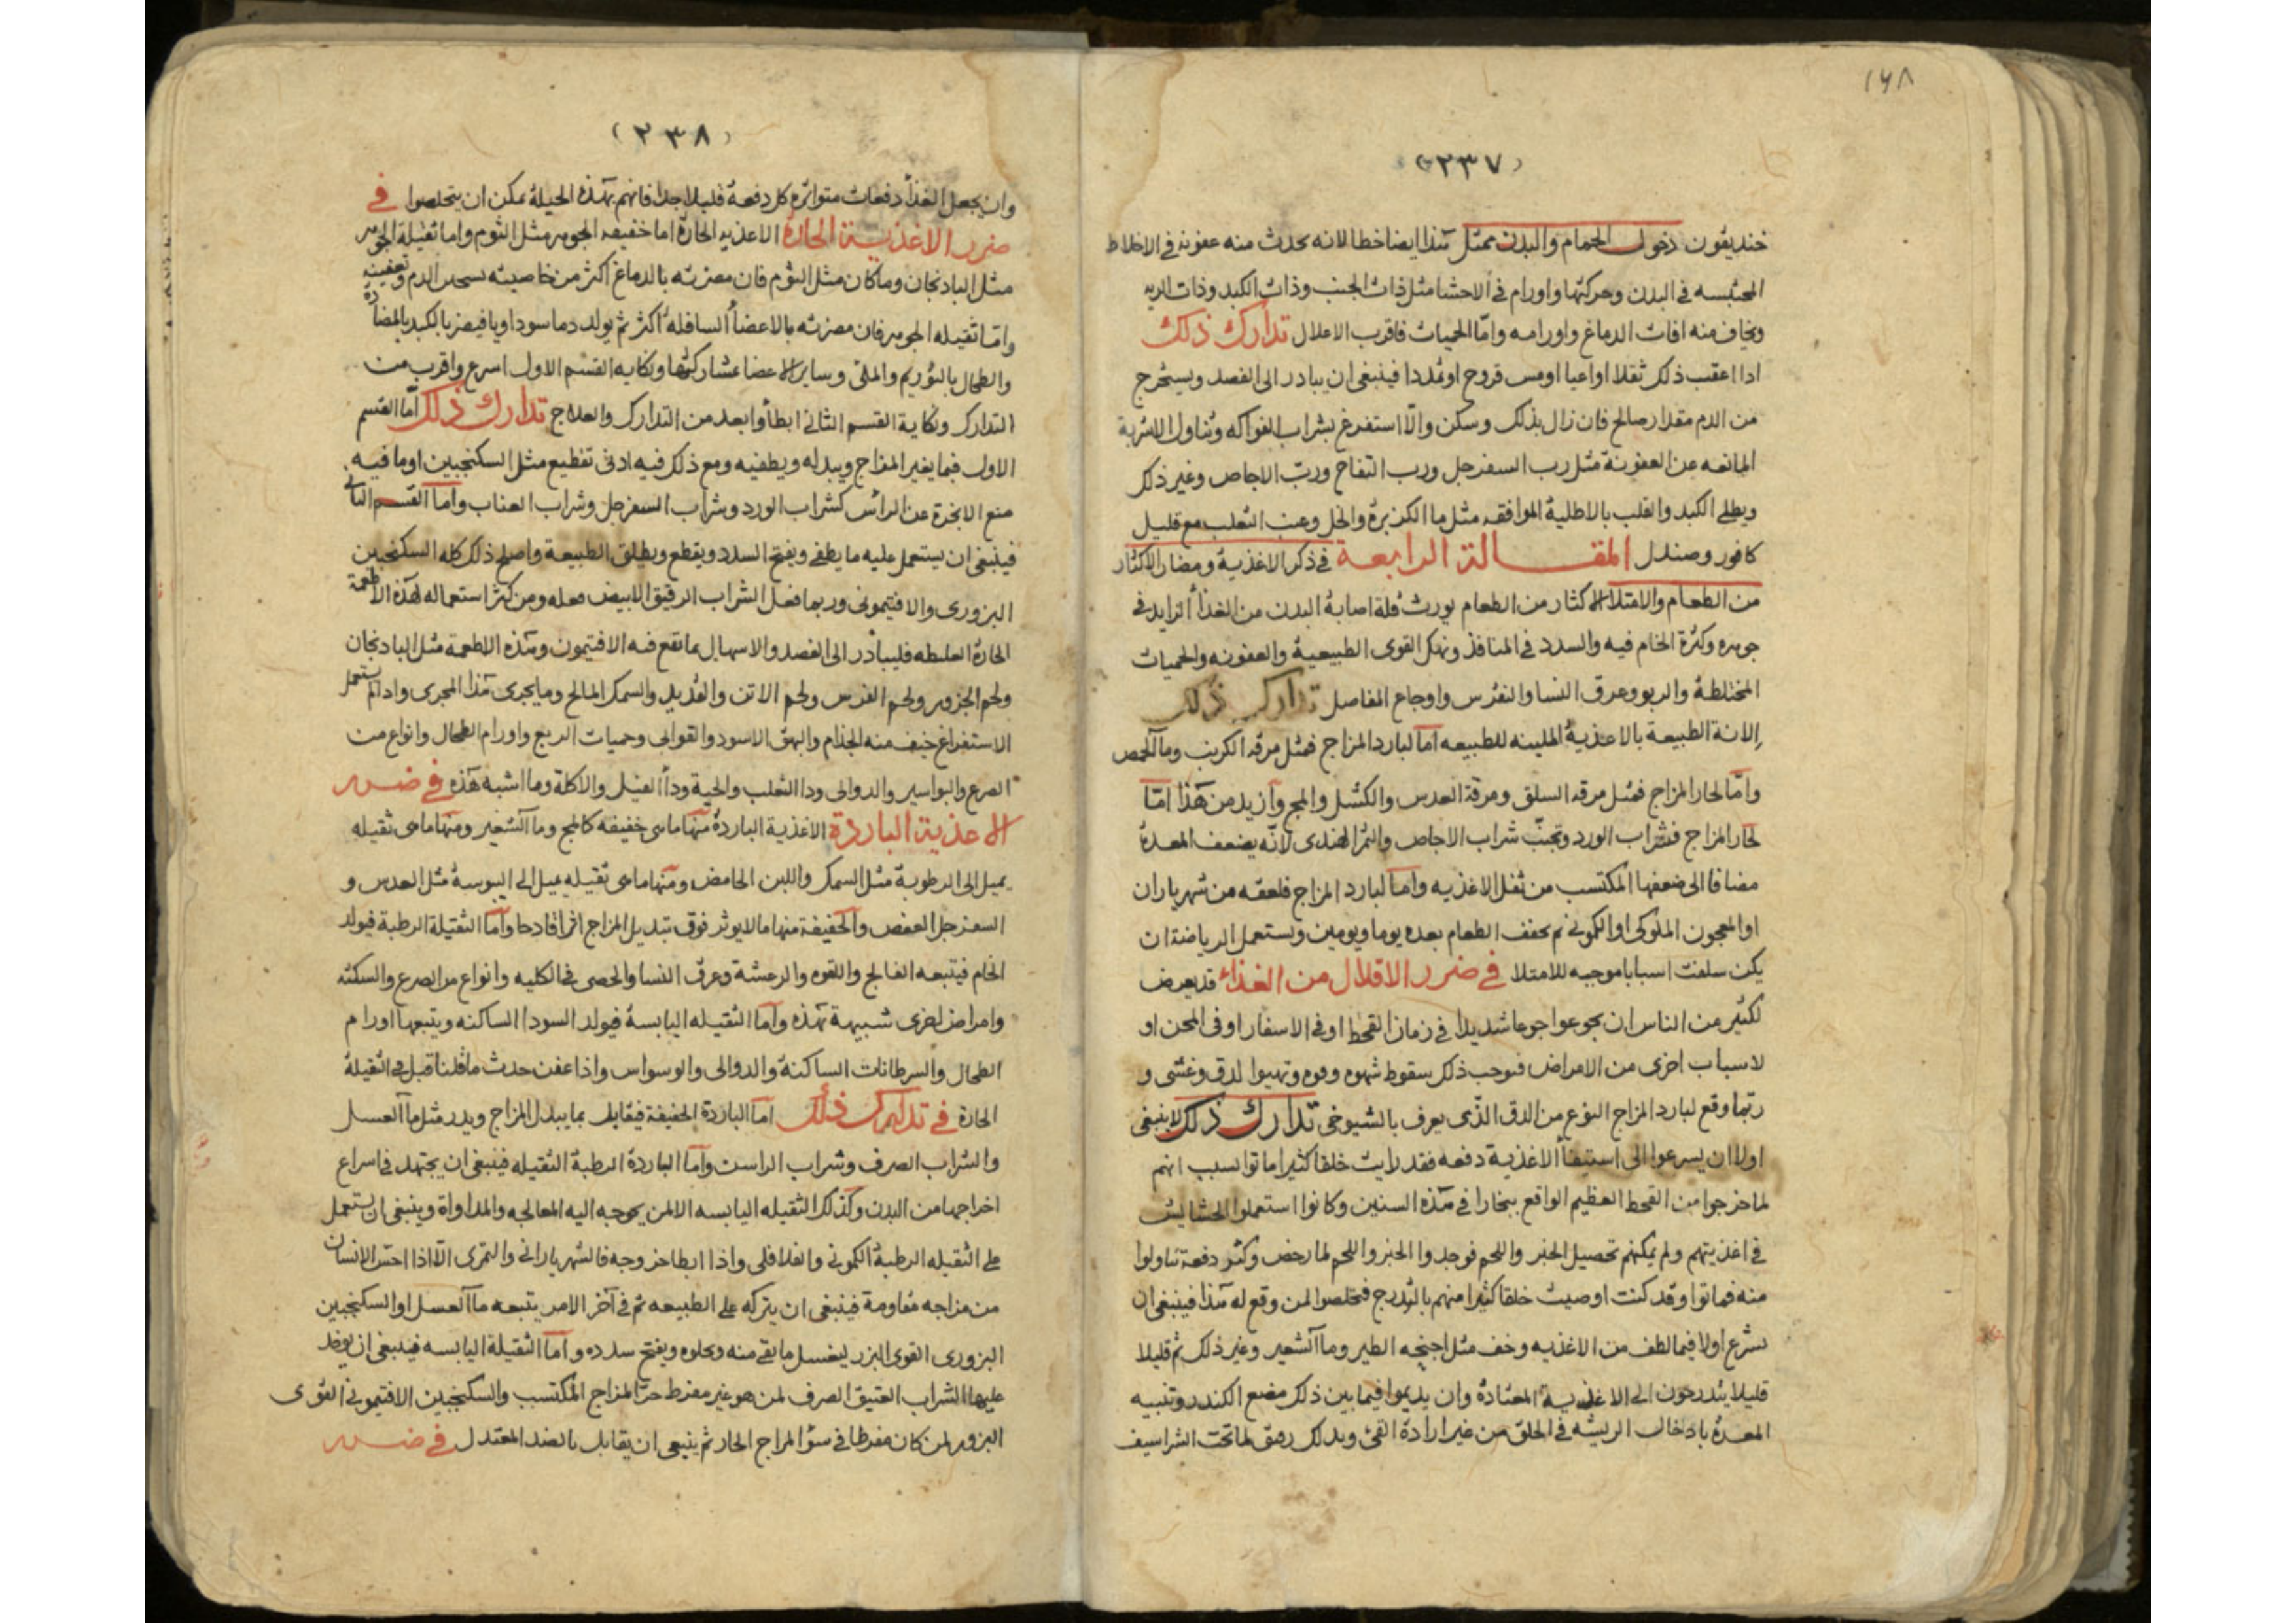 ١٤٨
(٢٣٧)
خنديقون دخول الحمام والبدن ممتل هذا ايضا خطا لانه يحدث منه عفونة في الاخلاط
المحتبسه في البدن وحركتها واورام في الاحشا مثل ذات الجنب وذات الكبد وذات الريه
ويخاف منه افات الدماغ واورامه وامّا الحميات فاقرب الاعلال تدارك ذلك
اذا اعقب ذلك ثقلا او اعيا او مس قروح او تمددا فينبغي ان يبادر الى الفصد ويستخرج
من الدم مقدار صالح فان زال بذلك وسكن والّا استفرغ بشراب الفواكه وتناول الاشربة
المانعه عن العفونة مثل رب السفرجل ورب التفاح وربّ الاجاص وغير ذلك
ويطلى الكبد والقلب بالاطلية الموافقه مثل ما الكزبرة والخل وعنب الثعلب مع قليل
كافور وصندل المقالة الرابعة في ذكر الاغذية ومضار الاكثار
من الطعام والامتلا الاكثار من الطعام يورث قلة اصابة البدن من الغذا الزايد في
جوهره وكثرة الخام فيه والسدد في المنافذ ونهك القوى الطبيعية والعفونه والحميات
المختلطة والربو وعرق النسا والنقرس واوجاع المفاصل تدارك ذلك
الانة الطبيعة بالاغذية الملينه للطبيعه اما لبارد المزاج فمثل مرقه الكرنب وما الحمص
وامّا لحار المزاج فمثل مرقه السلق ومرقة العدس والكشك والمج وازيد من هذا امّا
لحار المزاج فشراب الورد وتجنّب شراب الاجاص والتمر الهندى لانّه يضعف المعدة
مضافا الى ضعفها المكتسب من ثقل الاغذيه واما لبارد المزاج فلعقه من شهرياران
او المعجون الملوكى او الكمونى ثم يخفف الطعام بعده يوما ويومين وتستعمل الرياضة ان
يكن سلفت اسبابا موجبه للامتلا في ضرر الاقلال من الغذاء قد يعرض
لكثير من الناس ان يجوعوا جوعا شديدا في زمان القحط او في الاسفار او في المحن او
لاسباب اخرى من الامراض فيوجب ذلك سقوط شهوه وقوه وتهيوا لدق وغشى و
ربّما وقع لبارد المزاج النوع من الدق الذّى يعرف بالشيوخى تدارك ذلك لاينبغى
اولا ان يسرعوا الى استيفا الاغذية دفعه فقد رايت خلقا كثيرا ماتوا بسبب انهم
لما خرجوا من القحط العظيم الواقع ببخارا في هذه السنين وكانوا استعملوا الحشايش
في اغذيتهم ولم يمكنهم تحصيل الخبز واللحم فوجدوا الخبز واللحم لما رخص وكثر دفعة تناولوا
منه فماتوا وقد كنت اوصيت خلقا كثيرا منهم بالتدرج فتخلصوا لمن وقع له هذا فينبغى ان
يشرع اولا فيما لطف من الاغذيه وخف مثل اجنحه الطير وما الشعير وغير ذلك ثم قليلا
قليلا يتدرجون الى الاغذية المعتادة وان يديموا فيما بين ذلك مضغ الكندر وتنبيه
المعدة بادخال الريشه في الحلق من غير ارادة القئ وبدلك رفق لما تحت الشراسيف
(٢٣٨)
وان يجعل الغذا دفعات متواتره كل دفعة قليلا جدا فانهم بهذه الحيلة يمكن ان يتخلصوا في
ضرر الاغذية الحارة الاغذيه الحارة اما خفيفه الجوهر مثل الثوم واما ثقيلة الجوهر
مثل الباد نجان وما كان مثل الثوم فان مضرته بالدماغ اكثر من خاصيته الدم وتعفينه
وامّا ثقيله الجوهر فان مضرته بالاعضا السافله اكثر ثم يولد دما سوداويا فيضر بالكبد بالمضادة
والطحال بالتوريم والمنى وساير الاعضا بمشاركتها ونكايه القسم الاول اسرع واقرب من
التدارك ونكاية القسم الثانى ابطأ وابعد من التدارك والعلاج تدارك ذلك امّا القسم
الاول فبما يغير المزاج ويبدله ويطفيه ومع ذلك فيه ادنى تقطيع مثل السكنجبين او ما فيه
منع الابخرة عن الراس كشراب الورد وشراب السفرجل وشراب العناب واما القسم الثانى
فينبغى ان يستعمل عليه ما يطفى ويفتح السدد ويقطع ويطلق الطبيعة واصلح ذلك كله السكنجبين
البزورى والافتيمونى وربما فعل الشراب الرقيق الابيض فعله ومن كثر استعماله لهذه الاطعمة
الحارة الغليظه فليبادر الى الفصد والاسهال بما يقع فيه الافتيمون وهذه الاطعمة مثل الباد نجان
ولحم الجزور ولحم الفرس ولحم الاتن والقديد والسمك المالح وما يجرى هذا المجرى واذا لم يستعمل
الاستفراغ خيف منه الجذام والبهق الاسود والقوابى وحميات الربع واورام الطحال وانواع من
الصرع والبواسير والدوالى ودا الثعلب والحية ودا الفيل والاكلة وما اشبه هذه في ضرر
الاغذية الباردة الاغذية الباردة منها ماهى خفيفه كالمج وما الشعير ومنها ماهى ثقيله
يميل الى الرطوبة مثل السمك واللبن الحامض ومنها ماهى ثقيله يميل الى اليبوسة مثل العدس و
السفرجل العفص والخفيفة منها مالا يوثر فوق تبديل المزاج اثرا قادحا واما الثقيلة الرطبة فيولد
الخام فيتبعه الفالج واللقوه والرعشة وعرق النسا والحصى في الكليه وانواع من الصرع والسكته
وامراض اخرى شبيهة بهذه واما الثقيله اليابسة فيولد السودا الساكنه ويتبعها اورام
الطحال والسرطانات الساكنة والدوالى والوسواس واذا عفن حدث ما قلنا قبل في الثقيلة
الحارة في تدارك ذلك اما الباردة الخفيفة فيقابل بما يبدل المزاج ويدر مثل ما العسل
والشراب الصرف وشراب الراسن واما الباردة الرطبة الثقيله فينبغى ان يجتهد في اسراع
اخراجها من البدن وكذلك الثقيله اليابسه الا لمن يحوجه اليه المعالجه والمداواة وينبغى ان يستعمل
على الثقيله الرطبة الكمونى والفلافلى واذا ابطا خروجه فالشهريارانى والتمرى الّا اذا احسّ الانسان
من مزاجه مقاومة فينبغى ان يتركه على الطبيعه ثم في آخر الامر يتبعه ما العسل او السكنجبين
البزورى القوى البزر ليغسل ما بقى منه ويجلوه ويفتح سدده واما الثقيلة اليابسه فينبغى ان يوخذ
عليها الشراب العتيق الصرف لمن هو غير مفرط حرّ المزاج المكتسب والسكنجبين الافتيمونى القوى
البزور لمن كان مفرطا في سؤ المزاج الحار ثم ينبغى ان يقابل بالضد المعتدل في ضرر